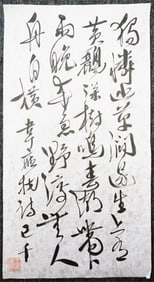 獨憐幽草澗邊生上有
黄鸝深樹鳴春潮帶
雨晚來急野渡無人
舟自横 韋應物詩